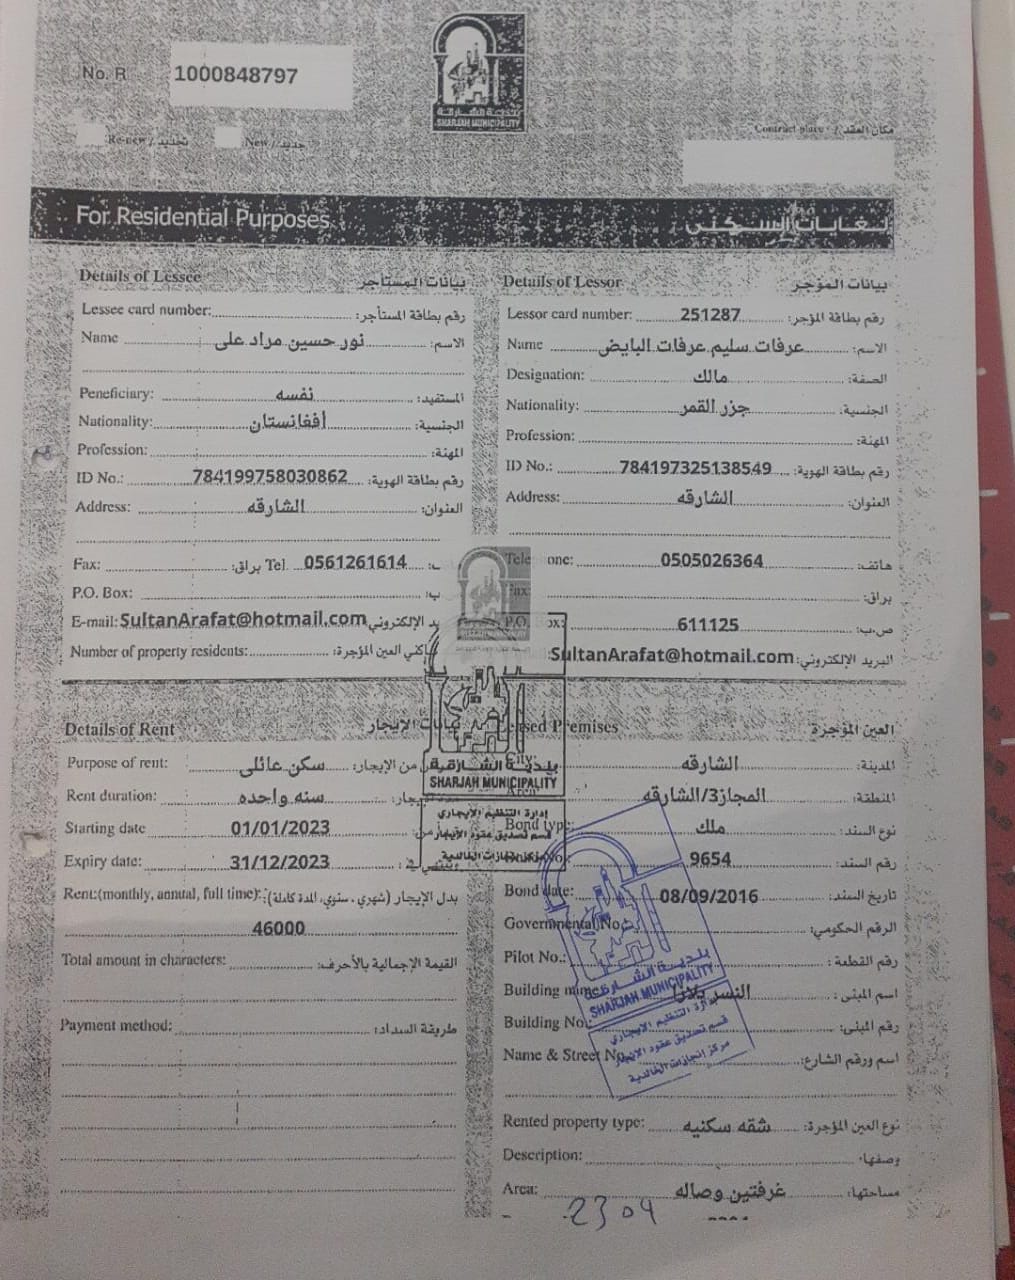 No. R 1000848797
بلدية الشارقة
SHARJAH MUNICIPALITY
Re-new / تجديد New / جديد
Contract place / مكان العقد
For Residential Purposes لغايات السكنى
Details of Lessee بيانات المستاجر
Lessee card number: رقم بطاقة المستأجر:
Name نور حسين مراد على الاسم:
Peneficiary: نفسه المستفيد:
Nationality: أفغانستان الجنسية:
Profession: المهنة:
ID No.: 784199758030862 رقم بطاقة الهوية:
Address: الشارقه العنوان:
Fax: براق: Tel. 0561261614
P.O. Box: ب:
E-mail: SultanArafat@hotmail.com يد الإلكتروني
Number of property residents: اكني العين المؤجرة:
Details of Lessor بيانات المؤجر
Lessor card number: 251287 رقم بطاقة المؤجر:
Name عرفات سليم عرفات البايض الاسم:
Designation: مالك الصفة:
Nationality: جزر القمر الجنسية:
Profession: المهنة:
ID No.: 784197325138549 رقم بطاقة الهوية:
Address: الشارقه العنوان:
Telephone: 0505026364 هاتف:
Fax: براق:
P.O. Box: 611125 ص.ب:
SultanArafat@hotmail.com البريد الإلكتروني:
Details of Rent بيانات الإيجار
Purpose of rent: سكن عائلى من الإيجار:
Rent duration: سنه واحده
Starting date 01/01/2023 من:
Expiry date: 31/12/2023
Rent:(monthly, annual, full time): بدل الإيجار (شهري، سنوي، المدة كاملة):
46000
Total amount in characters: القيمة الإجمالية بالأحرف:
Payment method: طريقة السداد:
بلدية الشارقة
SHARJAH MUNICIPALITY
إدارة التنظيم الايجاري
قسم تصديق عقود الايجار
مركز انجازات الخالدية
Leased Premises العين المؤجرة
City: الشارقه المدينة:
Area: المجاز3/الشارقه المنطقة:
Bond type: ملك نوع السند:
9654 رقم السند:
Bond date: 08/09/2016 تاريخ السند:
Governmental No. الرقم الحكومي:
Pilot No.: رقم القطعة:
Building name النسر بلازا اسم المبنى:
Building No. رقم المبنى:
Name & Street No. اسم ورقم الشارع:
بلدية الشارقة
SHARJAH MUNICIPALITY
إدارة التنظيم الايجاري
قسم تصديق عقود الايجار
مركز انجازات الخالدية
Rented property type: شقه سكنيه نوع العين المؤجرة:
Description: وصفها:
Area: غرفتين وصاله مساحتها:
2304